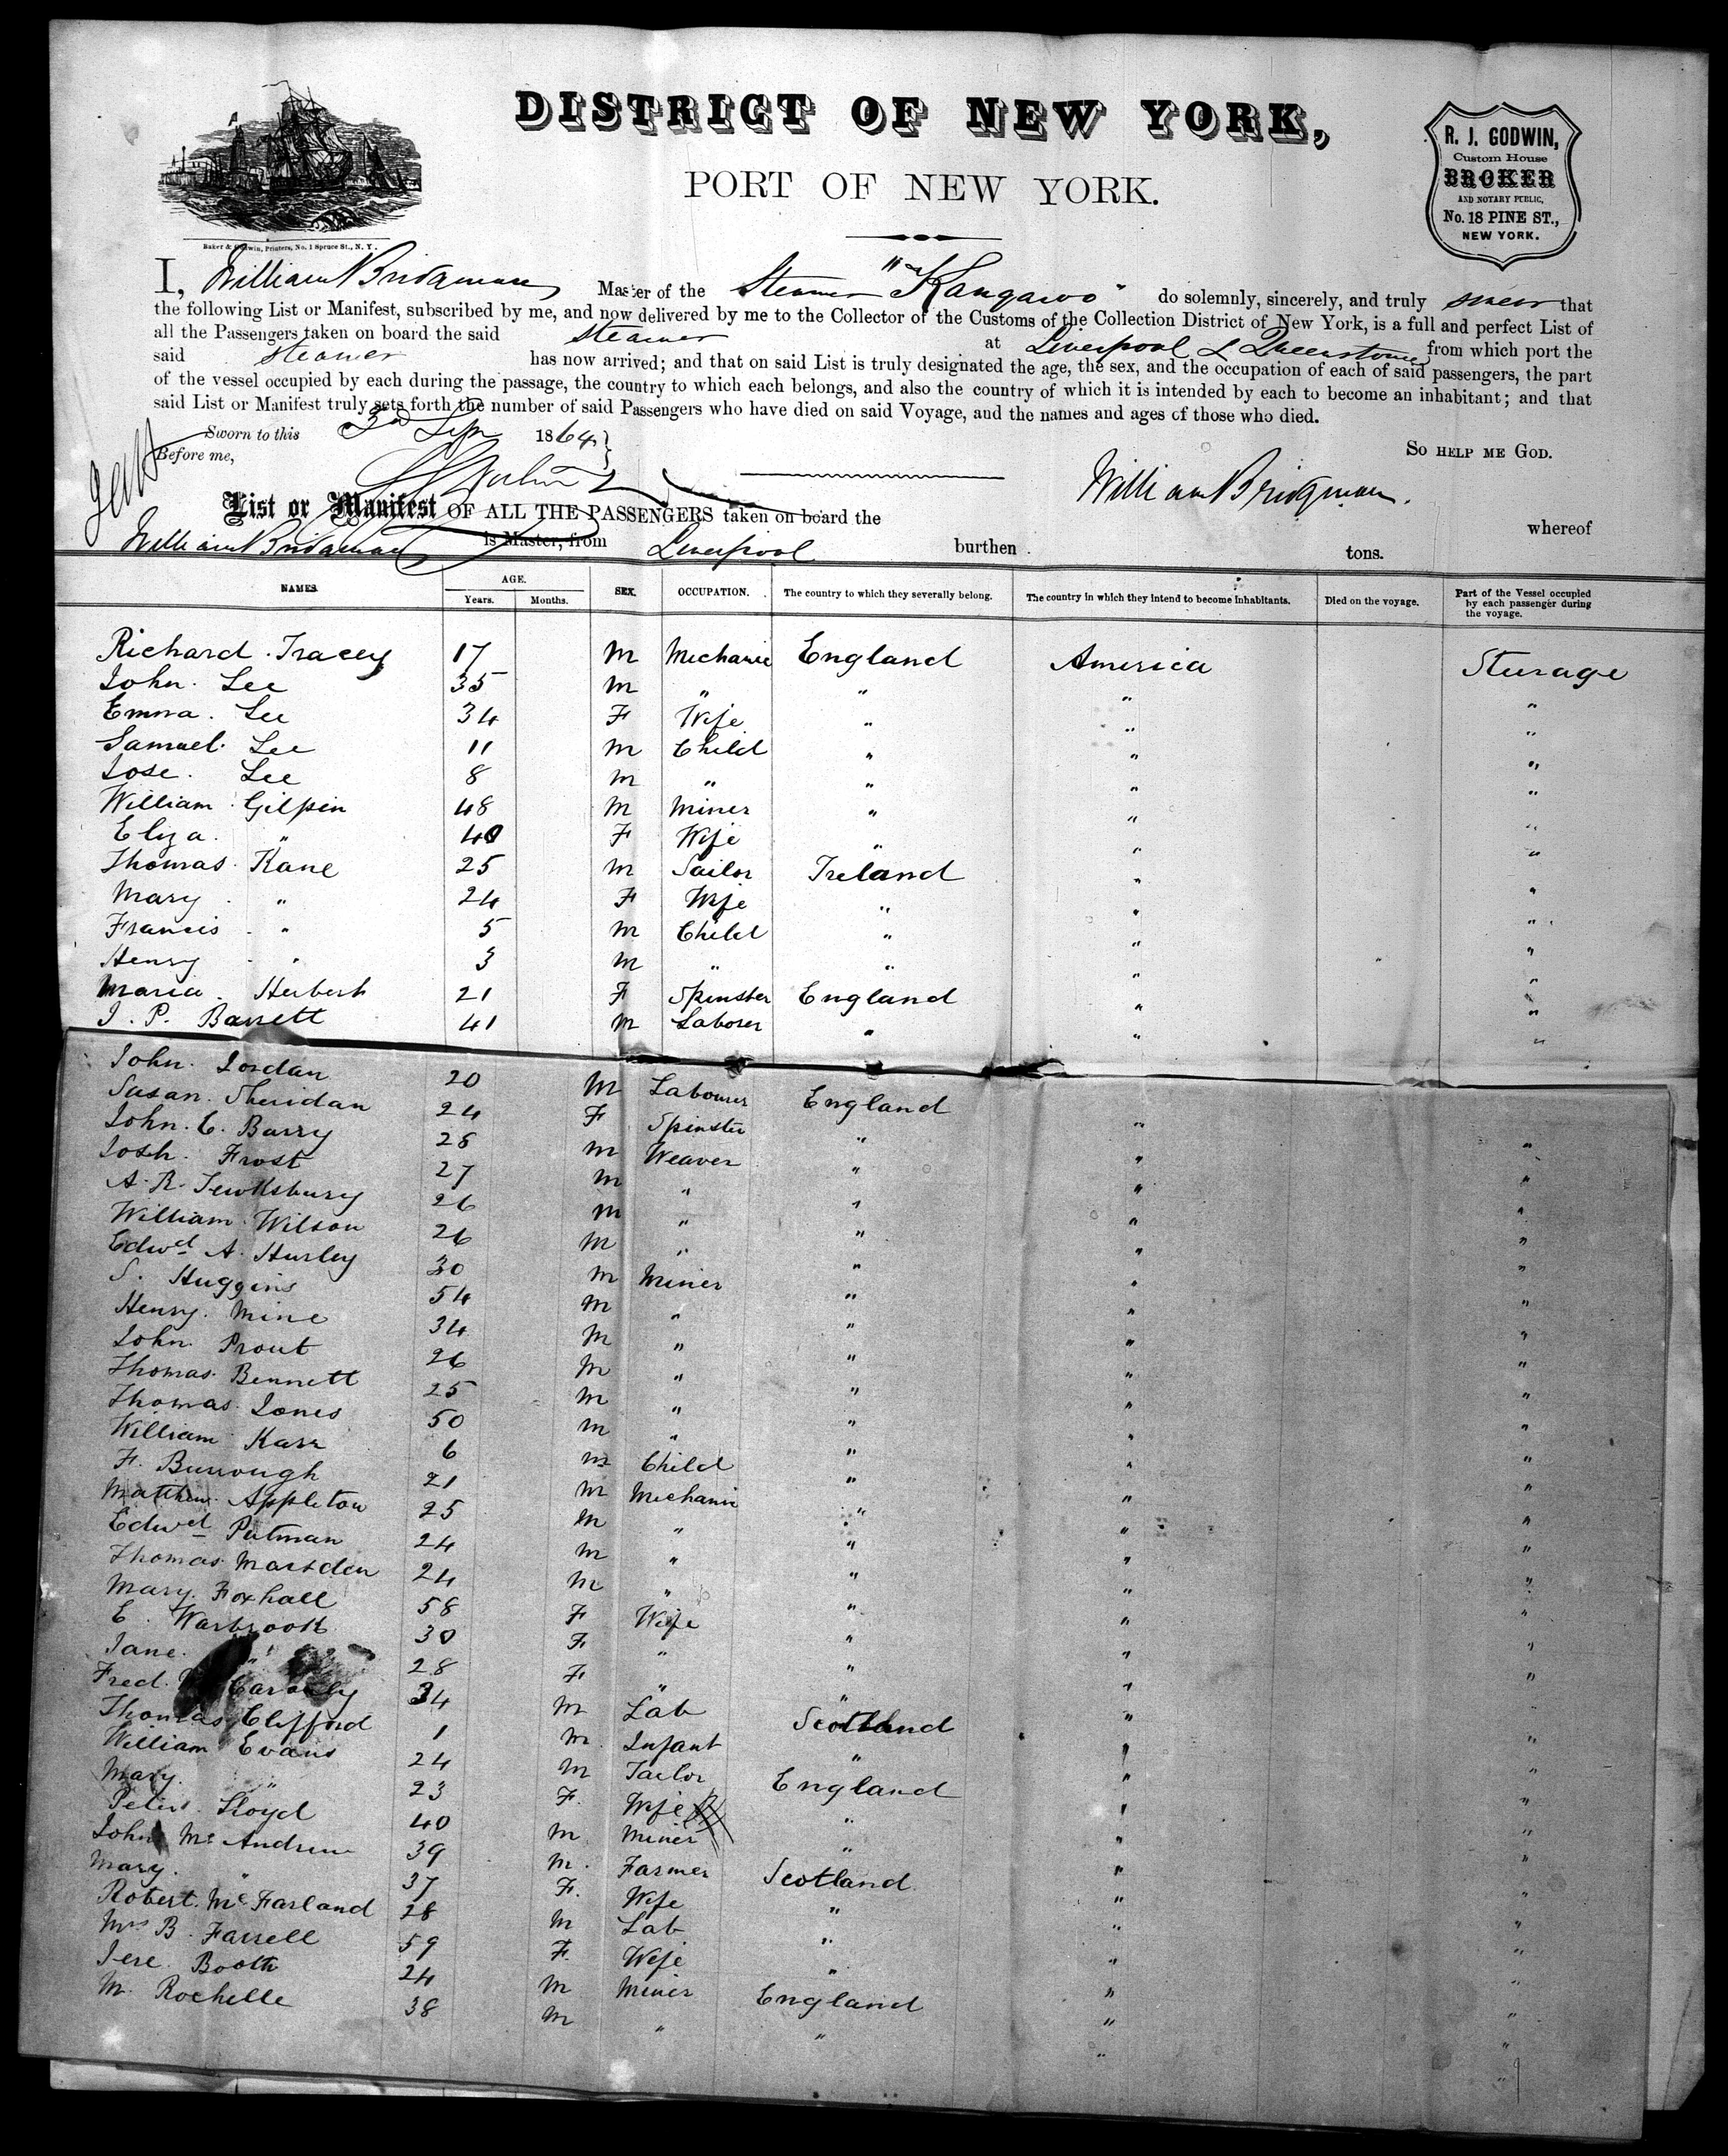 DISTRICT OF NEW YORK,
PORT OF NEW YORK.
Baker & Godwin, Printers, No. 1 Spruce St., N. Y.
R. J. GODWIN,
Custom House
BROKER
AND NOTARY PUBLIC,
No. 18 PINE ST.,
NEW YORK.
I, William Bridgman Master of the Steamer "Kangaroo" do solemnly, sincerely, and truly swear that
the following List or Manifest, subscribed by me, and now delivered by me to the Collector of the Customs of the Collection District of New York, is a full and perfect List of
all the Passengers taken on board the said steamer at Liverpool & Queenstown from which port the
said steamer has now arrived; and that on said List is truly designated the age, the sex, and the occupation of each of said passengers, the part
of the vessel occupied by each during the passage, the country to which each belongs, and also the country of which it is intended by each to become an inhabitant; and that
said List or Manifest truly sets forth the number of said Passengers who have died on said Voyage, and the names and ages of those who died.
Sworn to this 3d Sep 1864 }
So HELP ME GOD.
Before me,
William Bridgman.
List or Manifest OF ALL THE PASSENGERS taken on board the whereof
William Bridgman is Master, from Liverpool burthen tons.
NAMES. AGE. Years. Months. SEX. OCCUPATION. The country to which they severally belong. The country in which they intend to become Inhabitants. Died on the voyage. Part of the Vessel occupied by each passenger during the voyage.
Richard Tracey 17 M Mechanic England America Sturage
John Lee 35 M " " " "
Emma Lee 34 F Wife " " "
Samuel Lee 11 M Child " " "
Jose. Lee 8 M " " " "
William Gilpin 48 M Miner " " "
Eliza. " 40 F Wife " " "
Thomas Kane 25 M Sailor Ireland " "
Mary " 24 F Wife " " "
Francis " 5 M Child " " "
Henry " 3 M " " " "
Maria Herbert 21 F Spinster England " "
J. P. Barrett 41 M Laborer " " "
John Jordan 20 M Labourer England " "
Susan Sheridan 24 F Spinster " " "
John. E. Barry 28 M Weaver " " "
Josh. Frost 27 M " " " "
A. R. Tewksbury 26 M " " " "
William Wilson 26 M " " " "
Edwd A. Hurley 30 M Miner " " "
S. Huggins 54 M " " " "
Henry. Mine 34 M " " " "
John Prout 26 M " " " "
Thomas Bennett 25 M " " " "
Thomas Jones 50 M " " " "
William Karr 6 M Child " " "
F. Burrough 21 M Mechanic " " "
Matthew Appleton 25 M " " " "
Edwd Putman 24 M " " " "
Thomas Marsden 24 M " " " "
Mary Foxhall 58 F Wife " " "
E. Warbrook 30 F " " " "
Jane. " 28 F " " " "
Fred. 34 M Lab Scotland " "
Thomas Clifford 1 M Infant " " "
William Evans 24 M Tailor England " "
Mary. " 23 F. Wife " " "
Peter Lloyd 40 M Miner " " "
John Mc Andrew 39 M. Farmer Scotland " "
Mary. " 37 F. Wife " " "
Robert. Mc Farland 28 M Lab " " "
Mrs B. Farrell 59 F. Wife " " "
Jere Booth 24 M Miner England " "
M. Rochelle 38 M " " " "